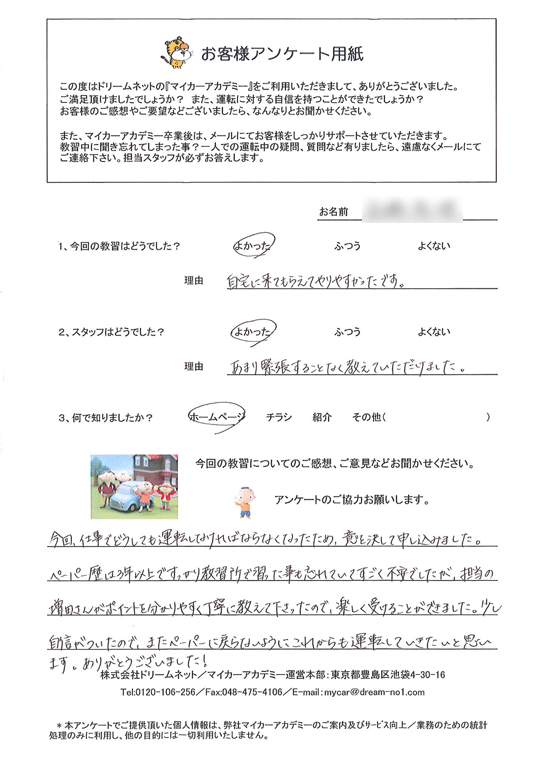 お客様アンケート用紙
この度はドリームネットの『マイカーアカデミー』をご利用いただきまして、ありがとうございました。
ご満足頂けましたでしょうか？ また、運転に対する自信を持つことができたでしょうか？
お客様のご感想やご要望などございましたら、なんなりとお聞かせください。
また、マイカーアカデミー卒業後は、メールにてお客様をしっかりサポートさせていただきます。
教習中に聞き忘れてしまった事？一人での運転中の疑問、質問など有りましたら、遠慮なくメールにて
ご連絡下さい。担当スタッフが必ずお答えします。
お名前
1、今回の教習はどうでした？ よかった ふつう よくない
理由 自宅に来てもらえてやりやすかったです。
2、スタッフはどうでした？ よかった ふつう よくない
理由 あまり緊張することなく教えていただけました。
3、何で知りましたか？ ホームページ チラシ 紹介 その他( )
今回の教習についてのご感想、ご意見などお聞かせください。
アンケートのご協力お願いします。
今回、仕事でどうしても運転しなければならなくなったため、意を決して申し込みました。
ペーパー歴は3年以上ですっかり教習所で習った事も忘れていてすごく不安でしたが、担当の
増田さんがポイントを分かりやすく丁寧に教えて下さったので、楽しく受けることができました。少し
自信がついたので、またペーパーに戻らないようにこれからも運転していきたいと思い
ます。ありがとうございました！
株式会社ドリームネット／マイカーアカデミー運営本部：東京都豊島区池袋4-30-16
Tel:0120-106-256／Fax:048-475-4106／E-mail：mycar@dream-no1.com
＊本アンケートでご提供頂いた個人情報は、弊社マイカーアカデミーのご案内及びサービス向上／業務のための統計
処理のみに利用し、他の目的には一切利用いたしません。